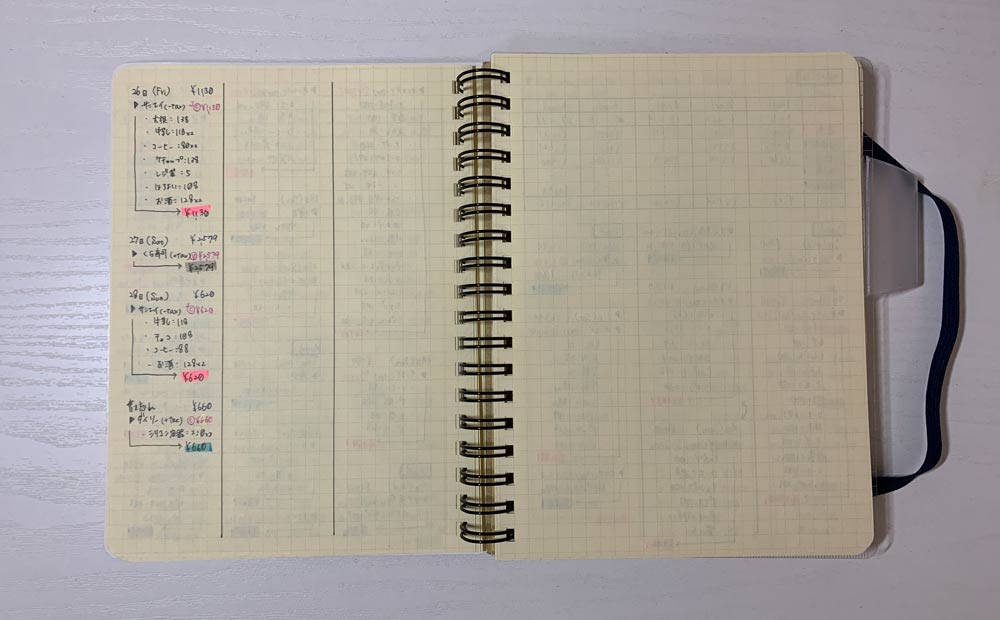 26日 (Fri) ¥1130
▶ サンエイ(-Tax) ¥1130
・大根 = 138
・牛乳 = 118×2
・コーヒー = 80×2
・ケチャップ = 138
・レジ袋 = 5
108
・お酒 = 128×2
¥1130
27日 (Sat) ¥2579
▶ くら寿司 (+Tax) ¥2579
¥2579
28日 (Sun) ¥620
▶ サンエイ(-Tax) ¥620
・牛乳 = 118
・チョコ = 108
・コーヒー = 88
・お酒 = 128×2
¥620
¥660
▶ ダイソー (+Tax) ¥660
・シリコン容器 = 220×3
¥660